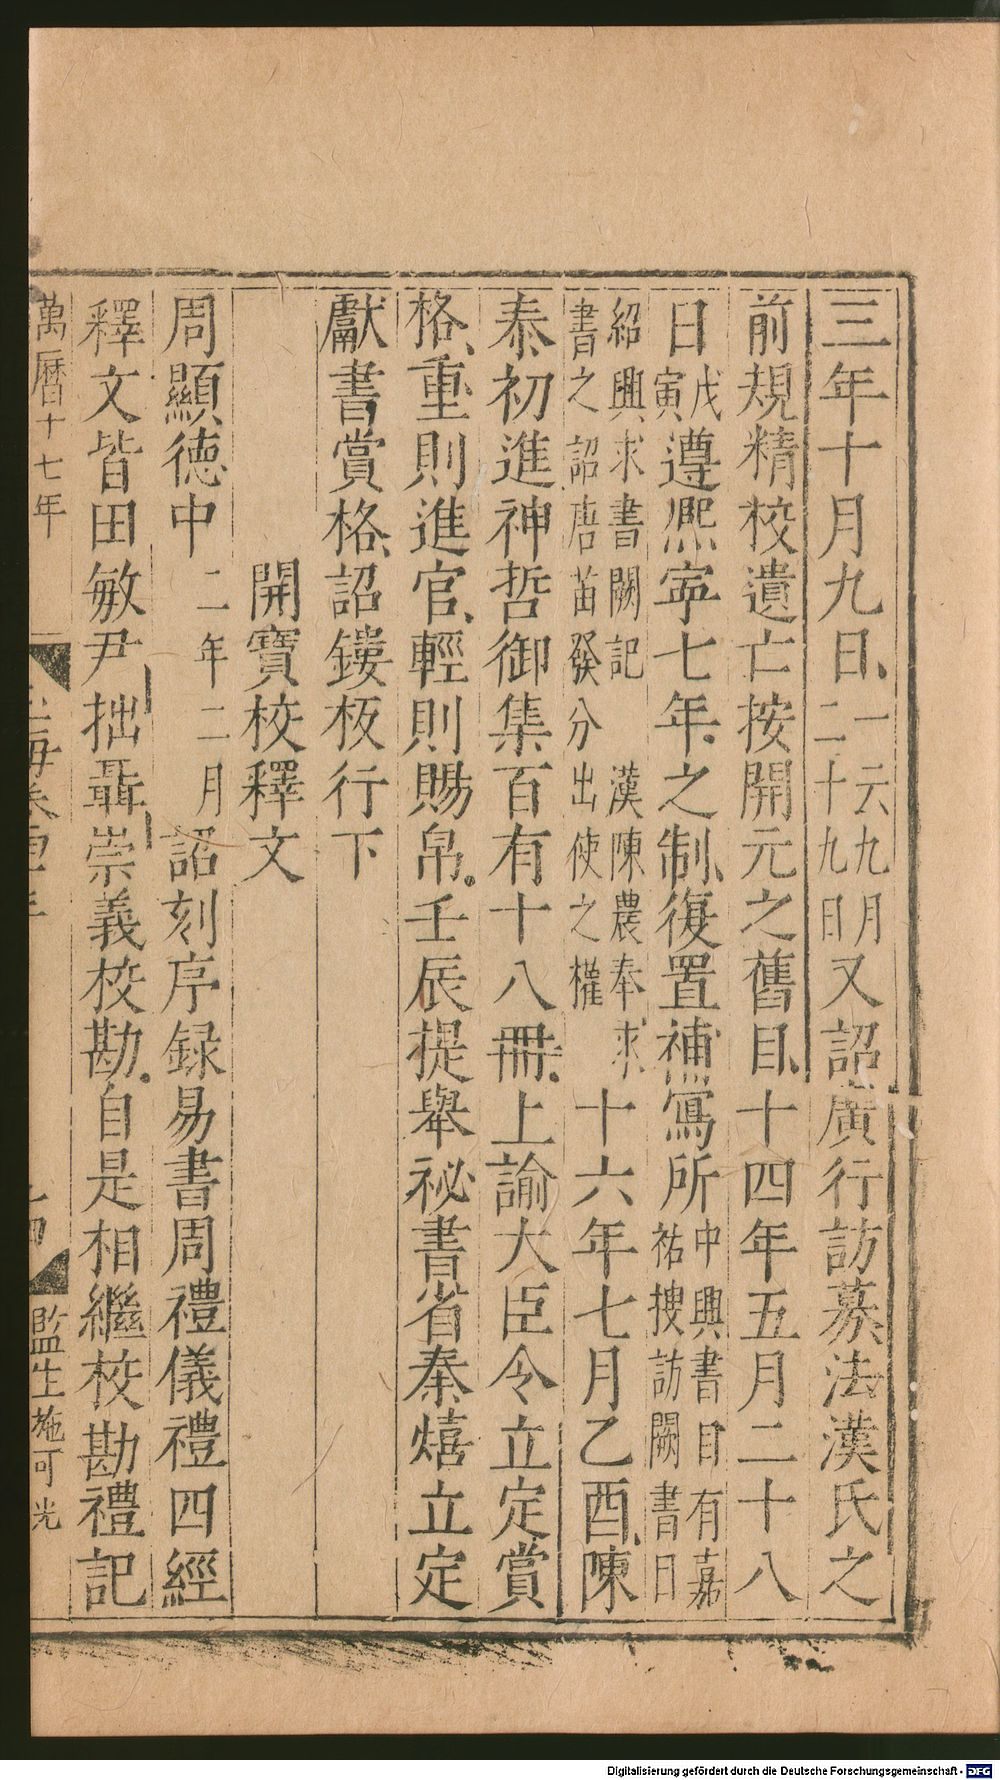 三年十月九日一云九月二十九日又詔廣行訪募法漢氏之
前規精校遺亡按開元之舊目十四年五月二十八
日戊寅遵熙寧七年之制復置補寫所中興書目有嘉祐搜訪闕書曰
紹興求書闕記漢陳農奉求書之詔唐苗發分出使之權十六年七月乙酉陳
泰初進神哲御集百有十八冊上諭大臣令立定賞
格重則進官輕則賜帛壬辰提舉祕書省秦熺立定
獻書賞格詔鏤板行下
開寶校釋文
周顯德中二年二月詔刻序録易書周禮儀禮四經
釋文皆田敏尹拙聶崇義校勘自是相繼校勘禮記
萬曆十七年
監生施可光
Digitalisierung gefördert durch die Deutsche Forschungsgemeinschaft - DFG